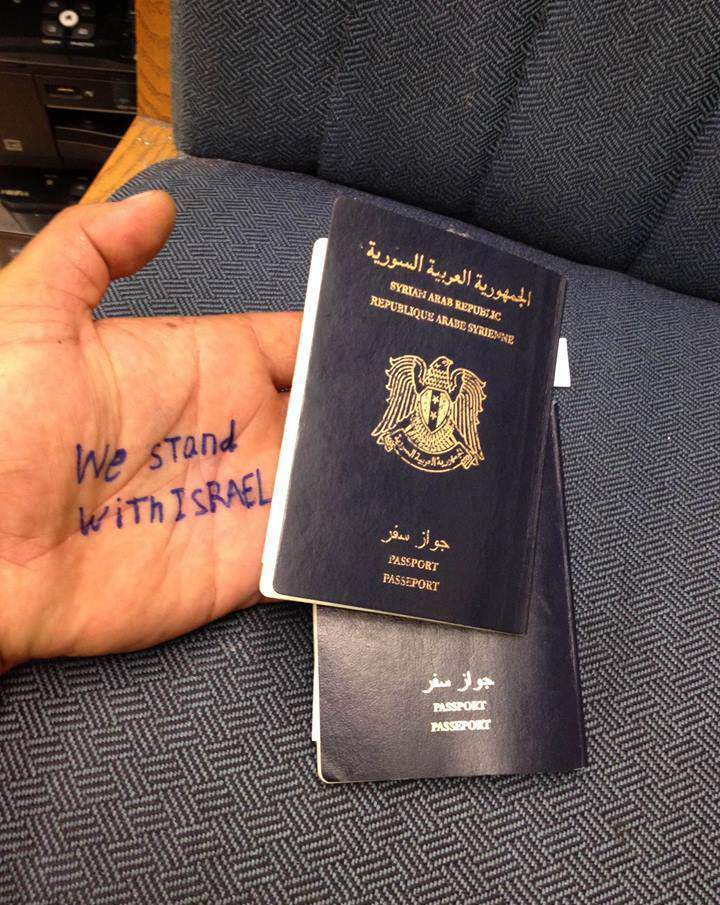 We stand
with ISRAEL
الجمهورية العربية السورية
SYRIAN ARAB REPUBLIC
REPUBLIQUE ARABE SYRIENNE
الجمهورية العربية السورية
جواز سفر
PASSPORT
PASSEPORT
جواز سفر
PASSPORT
PASSEPORT